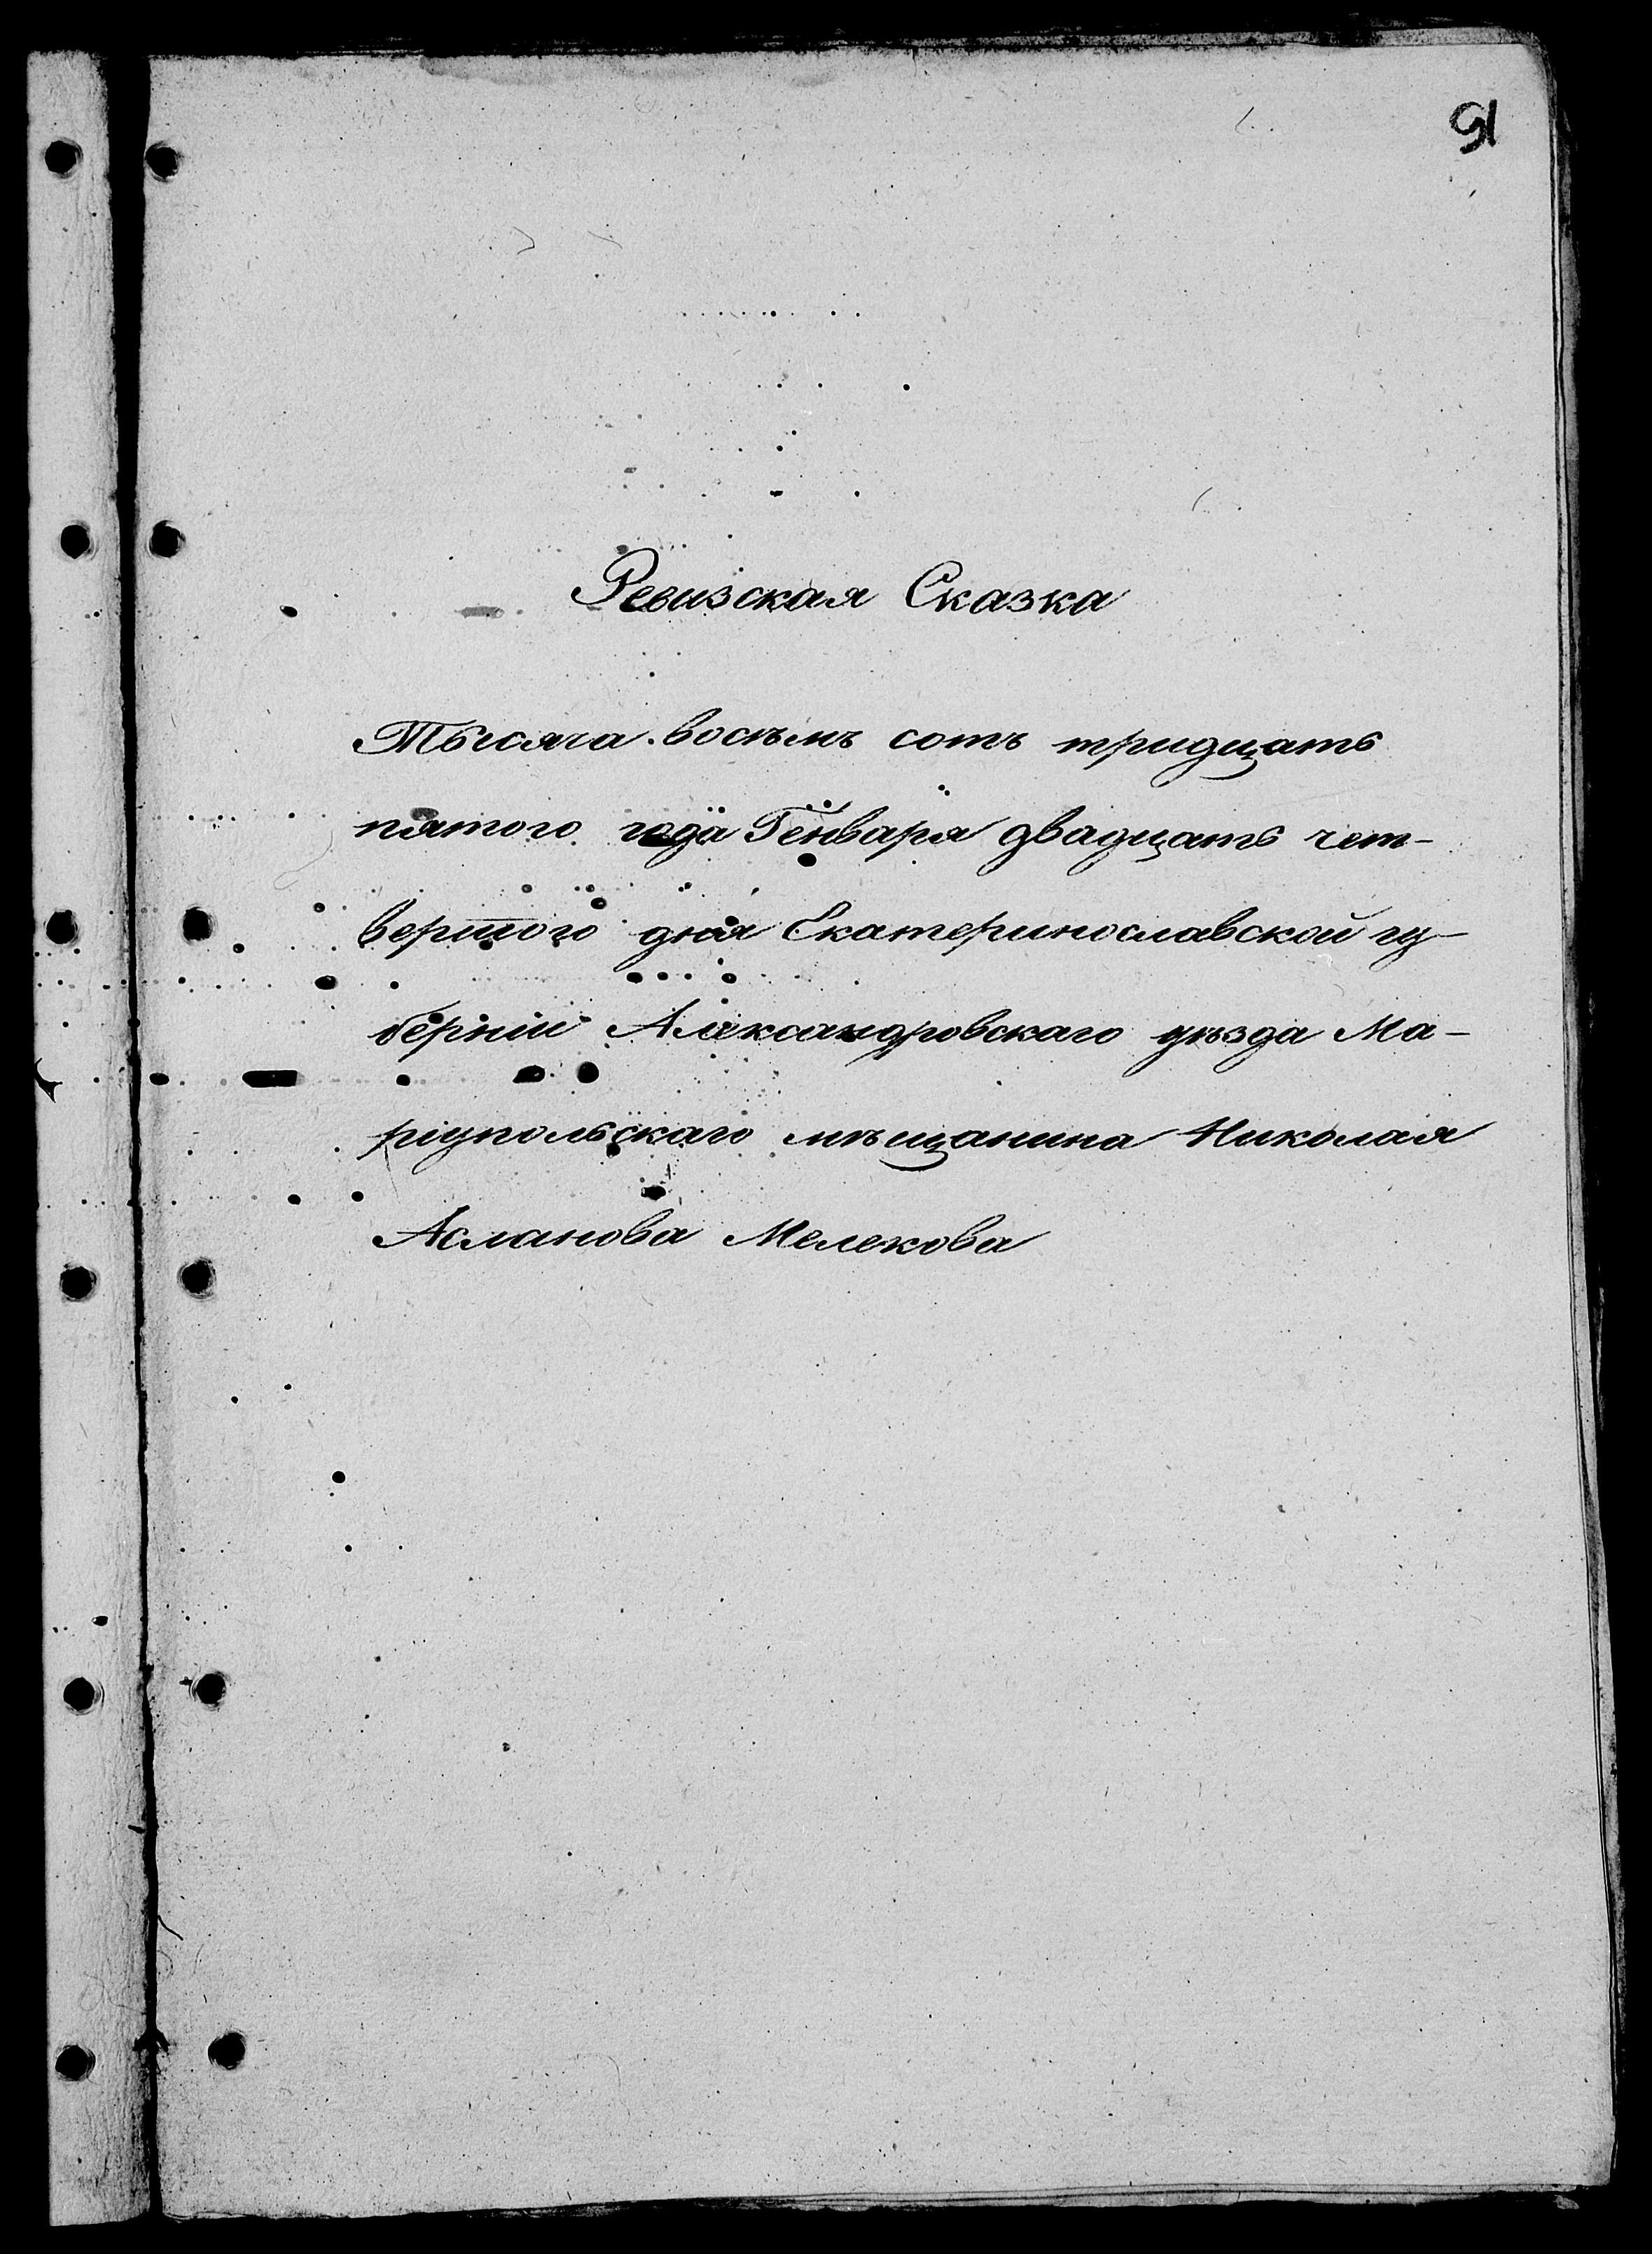 91
Ревизская Сказка
Тысяча восѣмъ сотъ тридцать
пятого года Генваря двадцать чет-
вертого дня Екатеринославской гу-
берніи Александровскаго уѣзда Ма-
ріупольскаго мѣщанина Николая
Асланова Мелекова